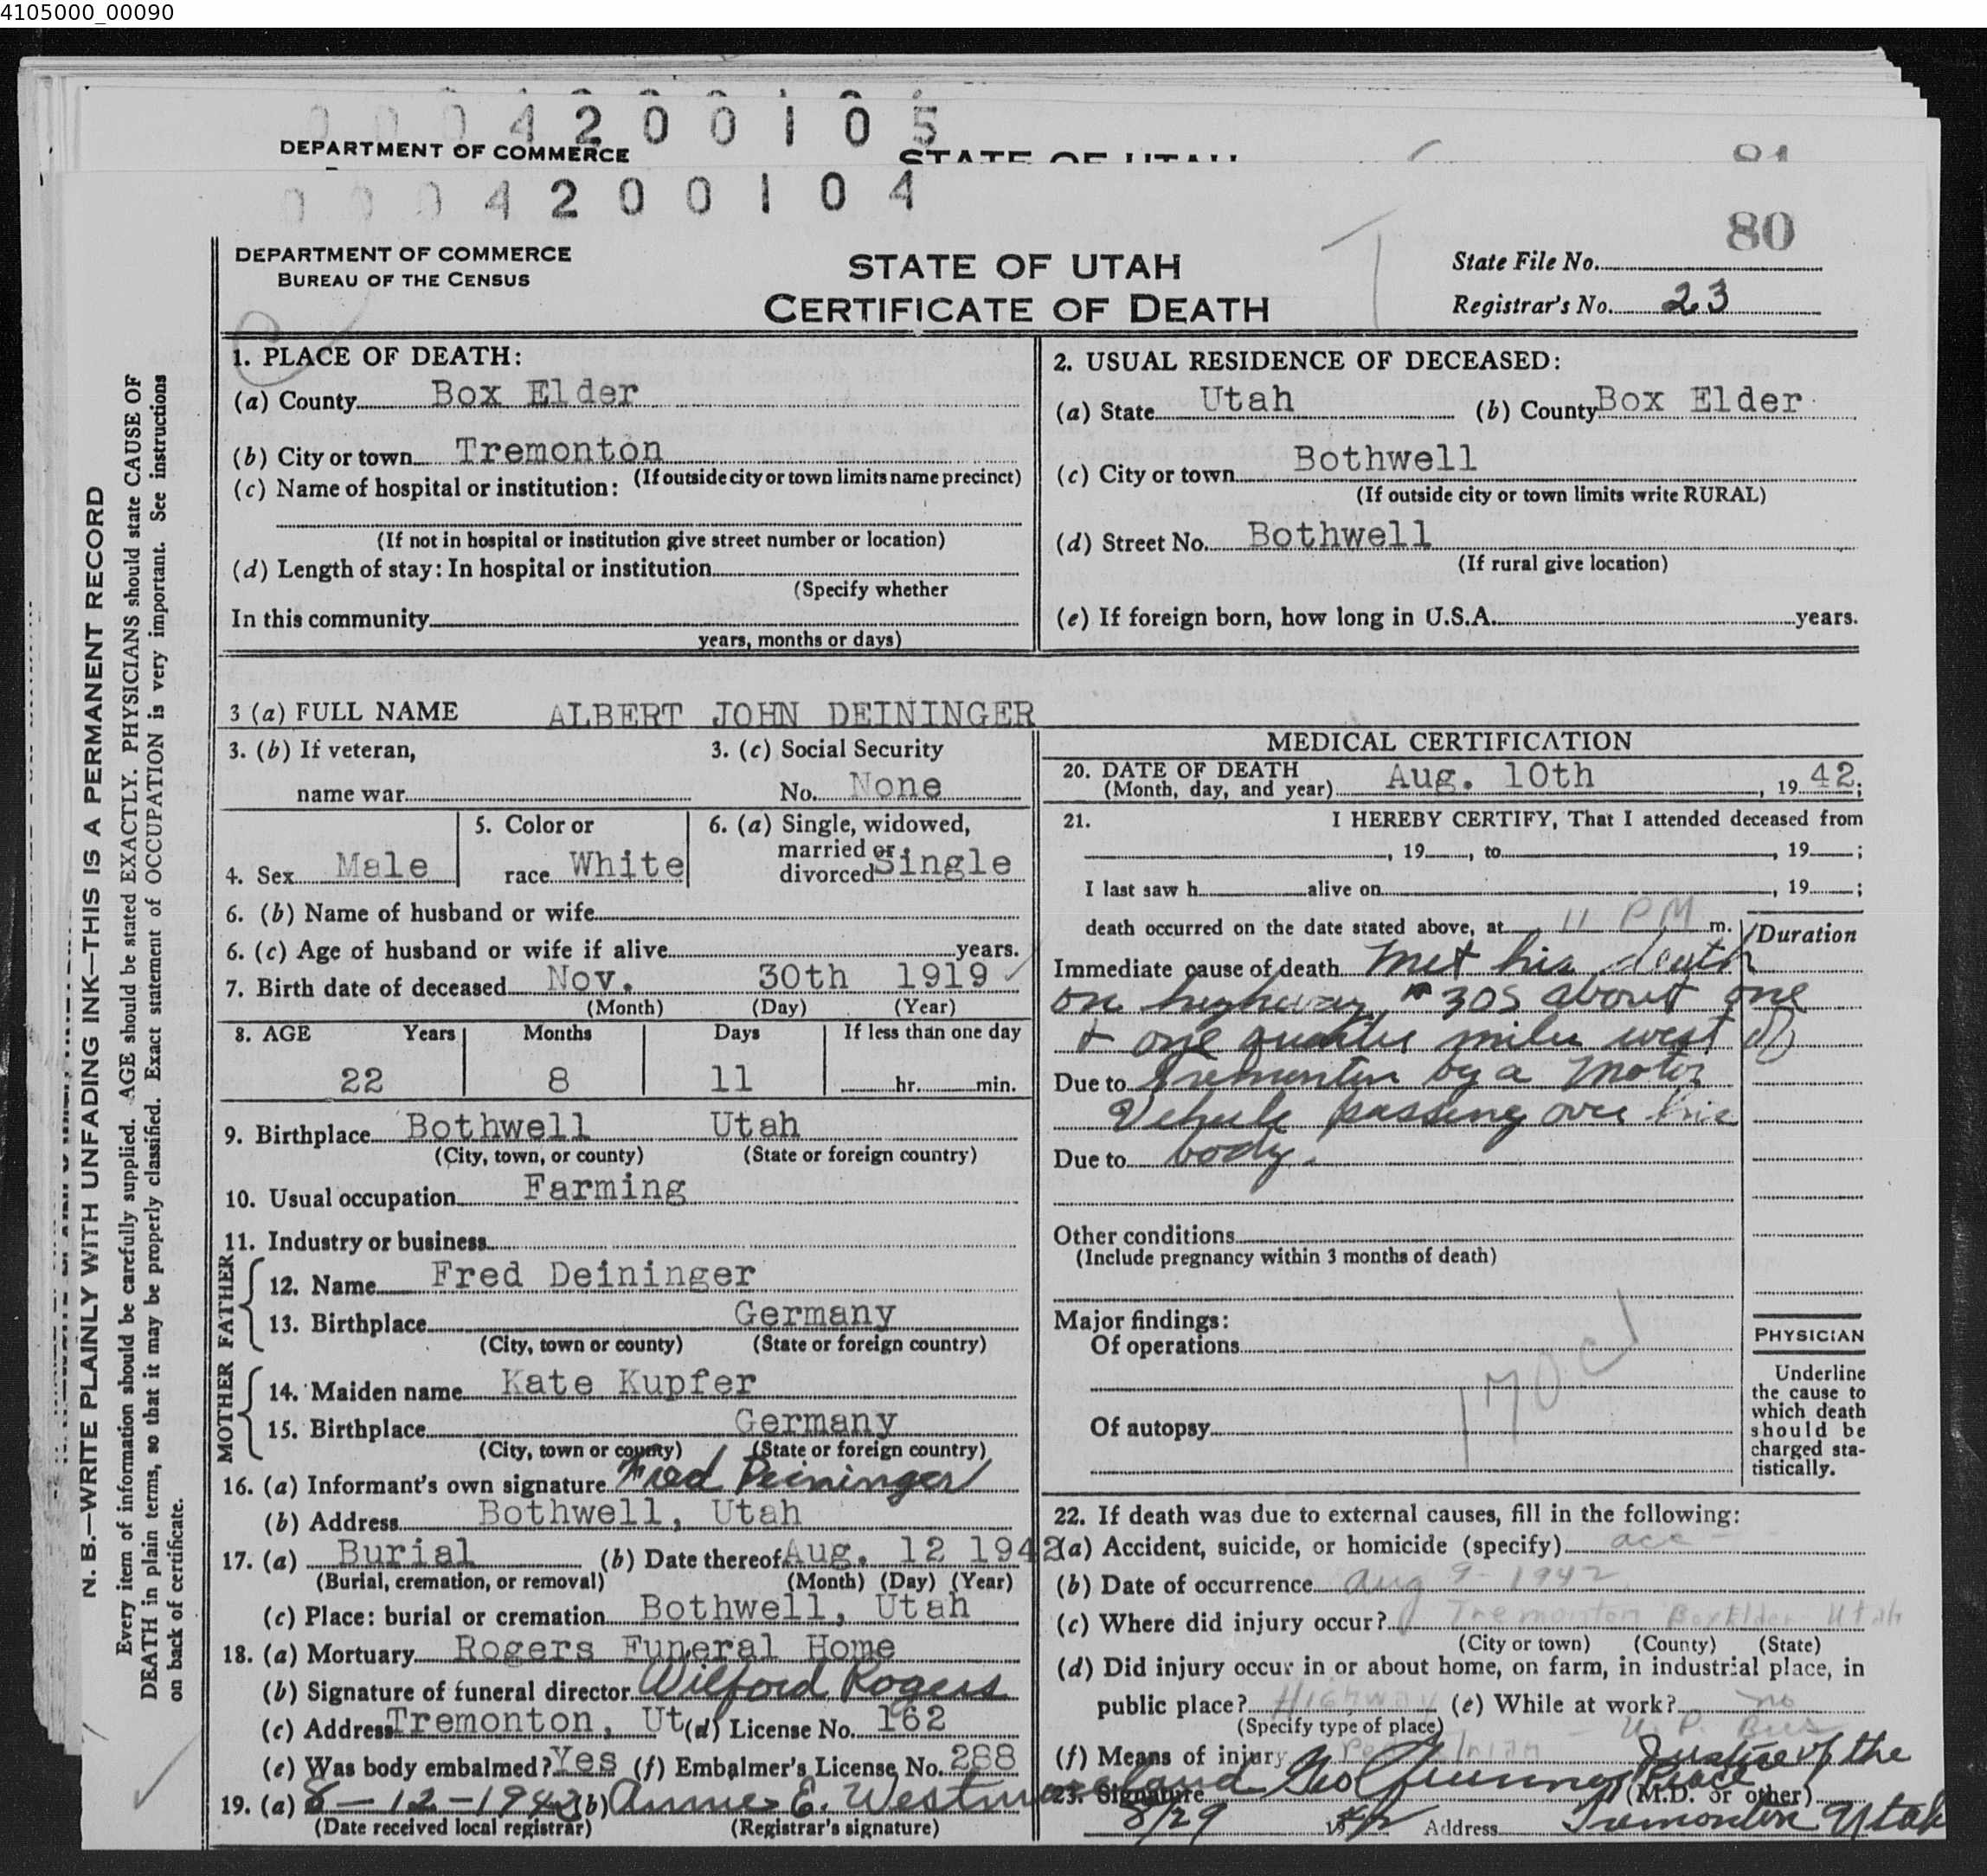 4105000_00090
0004200105
DEPARTMENT OF COMMERCE
STATE OF UTAH
81
0004200104
80
DEPARTMENT OF COMMERCE
BUREAU OF THE CENSUS
STATE OF UTAH
CERTIFICATE OF DEATH
State File No.
Registrar's No. 23
N. B.—WRITE PLAINLY WITH UNFADING INK—THIS IS A PERMANENT RECORD
Every item of information should be carefully supplied. AGE should be stated EXACTLY. PHYSICIANS should state CAUSE OF
DEATH in plain terms, so that it may be properly classified. Exact statement of OCCUPATION is very important. See instructions
on back of certificate.
1. PLACE OF DEATH:
(a) County Box Elder
(b) City or town Tremonton
(If outside city or town limits name precinct)
(c) Name of hospital or institution:
(If not in hospital or institution give street number or location)
(d) Length of stay: In hospital or institution
(Specify whether
In this community
years, months or days)
2. USUAL RESIDENCE OF DECEASED:
(a) State Utah (b) County Box Elder
(c) City or town Bothwell
(If outside city or town limits write RURAL)
(d) Street No. Bothwell
(If rural give location)
(e) If foreign born, how long in U.S.A. years.
3 (a) FULL NAME ALBERT JOHN DEININGER
3. (b) If veteran,
name war
3. (c) Social Security
No. None
4. Sex Male
5. Color or
race White
6. (a) Single, widowed,
married or
divorced Single
6. (b) Name of husband or wife
6. (c) Age of husband or wife if alive years.
7. Birth date of deceased Nov. 30th 1919
(Month) (Day) (Year)
8. AGE Years Months Days If less than one day
22 8 11 hr. min.
9. Birthplace Bothwell Utah
(City, town, or county) (State or foreign country)
10. Usual occupation Farming
11. Industry or business
FATHER
12. Name Fred Deininger
13. Birthplace Germany
(City, town or county) (State or foreign country)
MOTHER
14. Maiden name Kate Kupfer
15. Birthplace Germany
(City, town or county) (State or foreign country)
16. (a) Informant's own signature Fred Deininger
(b) Address Bothwell, Utah
17. (a) Burial (b) Date thereof Aug. 12 1942
(Burial, cremation, or removal) (Month) (Day) (Year)
(c) Place: burial or cremation Bothwell, Utah
18. (a) Mortuary Rogers Funeral Home
(b) Signature of funeral director Wilford Rogers
(c) Address Tremonton, Ut (d) License No. 162
(e) Was body embalmed? Yes (f) Embalmer's License No. 288
19. (a) 8-12-1942 (b) Annie E. Westmoreland
(Date received local registrar) (Registrar's signature)
MEDICAL CERTIFICATION
20. DATE OF DEATH
(Month, day, and year) Aug. 10th, 1942;
21. I HEREBY CERTIFY, That I attended deceased from
, 19 , to , 19 ;
I last saw h alive on , 19 ;
death occurred on the date stated above, at 11 PM m.
Duration
Immediate cause of death Met his death
on highway #30S about one
+ one quarter miles west of
Due to Tremonton by a Motor
Vehicle passing over his
Due to body.
Other conditions
(Include pregnancy within 3 months of death)
Major findings:
Of operations
Of autopsy
170c
PHYSICIAN
Underline
the cause to
which death
should be
charged sta-
tistically.
22. If death was due to external causes, fill in the following:
(a) Accident, suicide, or homicide (specify) acc
(b) Date of occurrence Aug 9-1942
(c) Where did injury occur? Tremonton Box Elder Utah
(City or town) (County) (State)
(d) Did injury occur in or about home, on farm, in industrial place, in
public place? Highway (e) While at work? no
(Specify type of place)
(f) Means of injury Pedestrian - U.P. Bus
23. Signature Justice of the
Peace (M.D. or other)
8/29 1942 Address Tremonton Utah